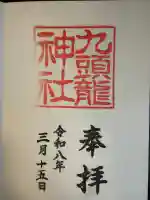 奉拝
九頭龍
神社
令和八年
三月十五日